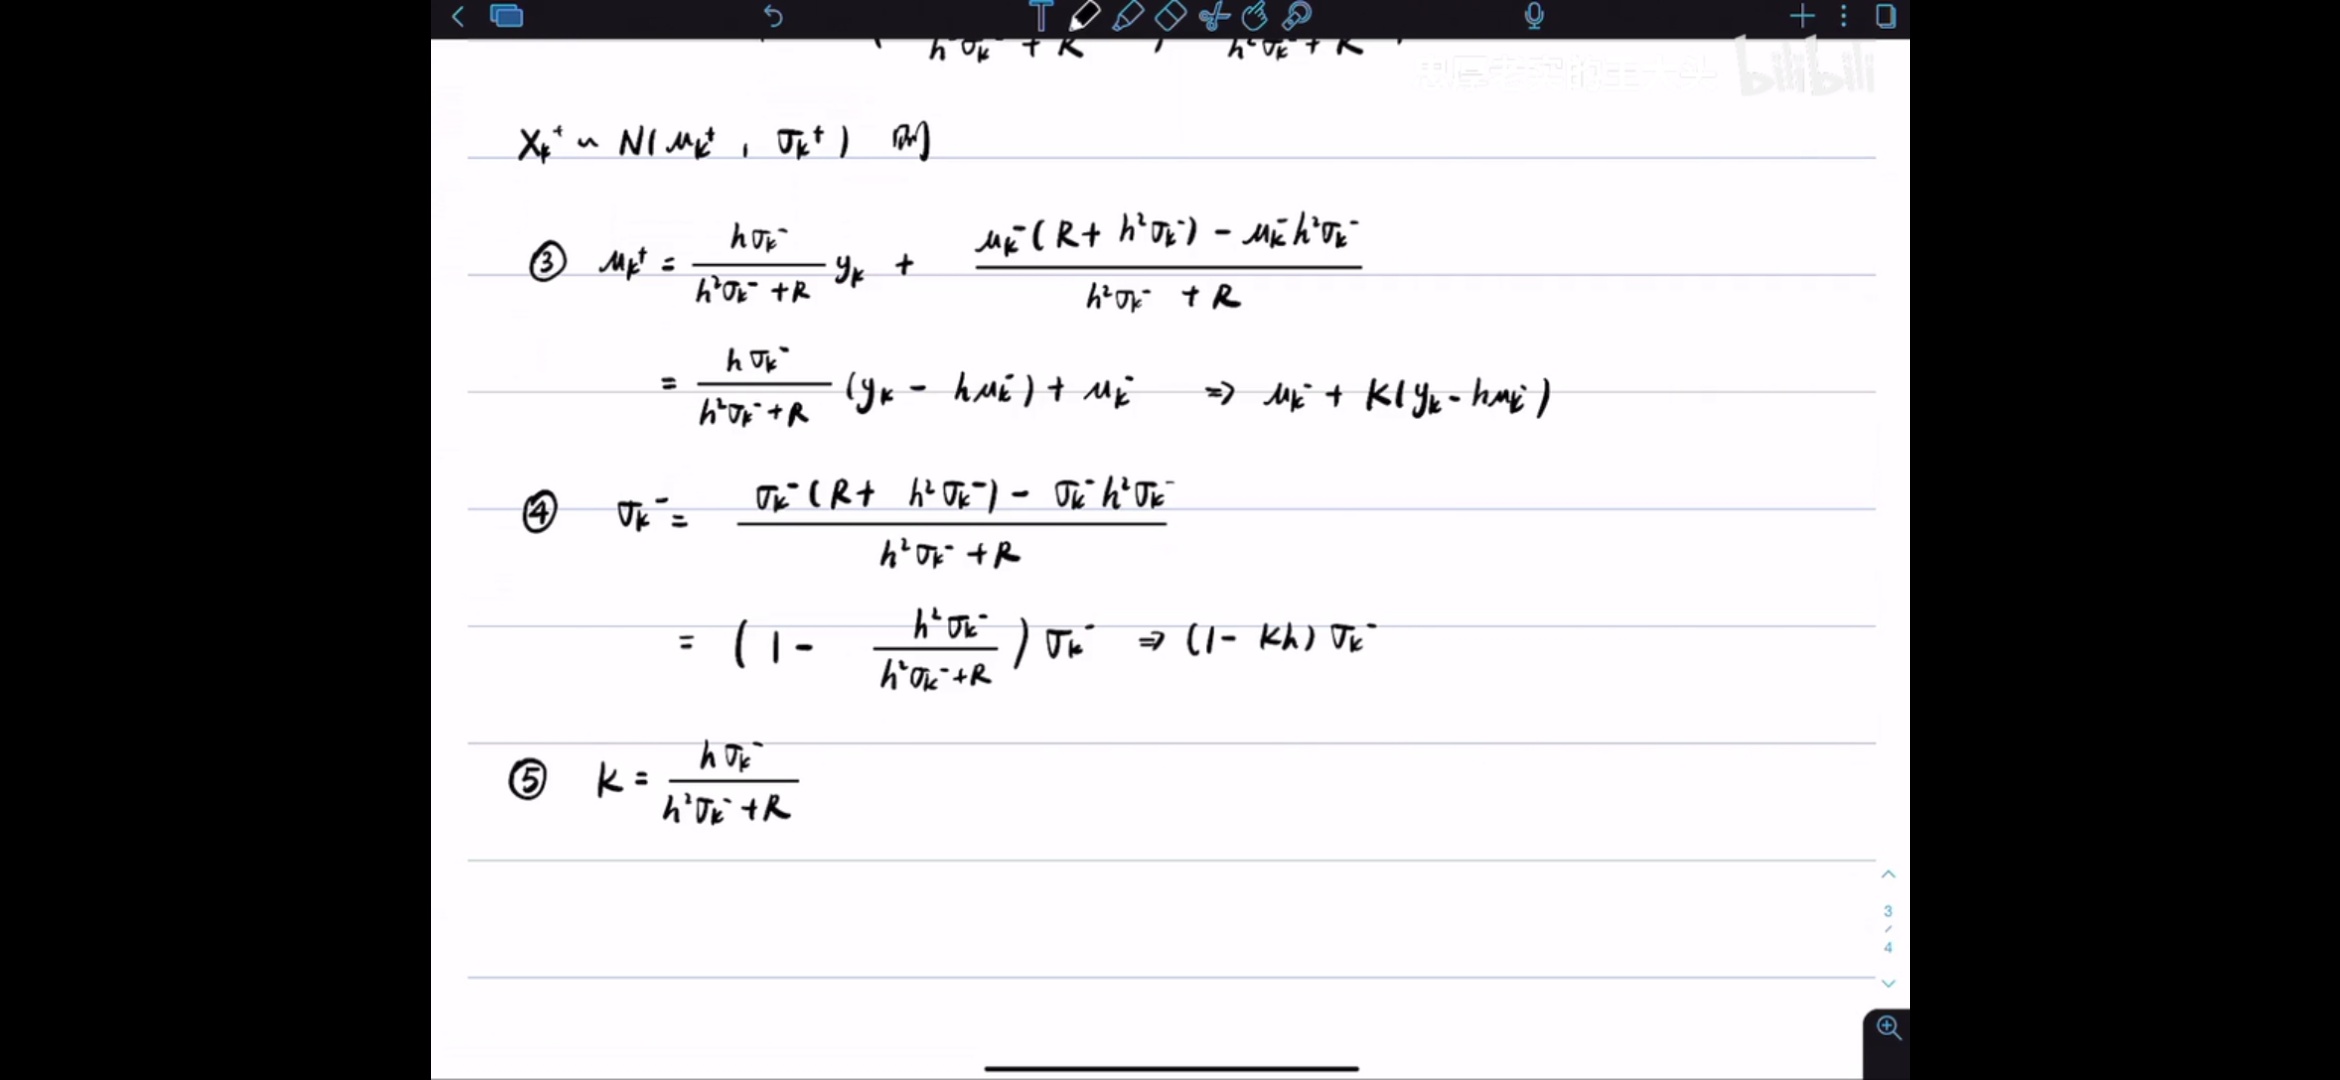 h²σₖ⁻ + R ) h²σₖ⁻ + R
bilibili
Xₖ⁺ ~ N(μₖ⁺, σₖ⁺) 则
③ μₖ⁺ = \frac{hσₖ⁻}{h²σₖ⁻ + R} yₖ + \frac{μₖ⁻(R + h²σₖ⁻) - μₖ⁻h²σₖ⁻}{h²σₖ⁻ + R}
= \frac{hσₖ⁻}{h²σₖ⁻ + R} (yₖ - hμₖ⁻) + μₖ⁻ ⇒ μₖ⁻ + K(yₖ - hμₖ⁻)
④ σₖ⁻ = \frac{σₖ⁻(R + h²σₖ⁻) - σₖ⁻h²σₖ⁻}{h²σₖ⁻ + R}
= (1 - \frac{h²σₖ⁻}{h²σₖ⁻ + R}) σₖ⁻ ⇒ (1 - Kh) σₖ⁻
⑤ K = \frac{hσₖ⁻}{h²σₖ⁻ + R}
3
/
4